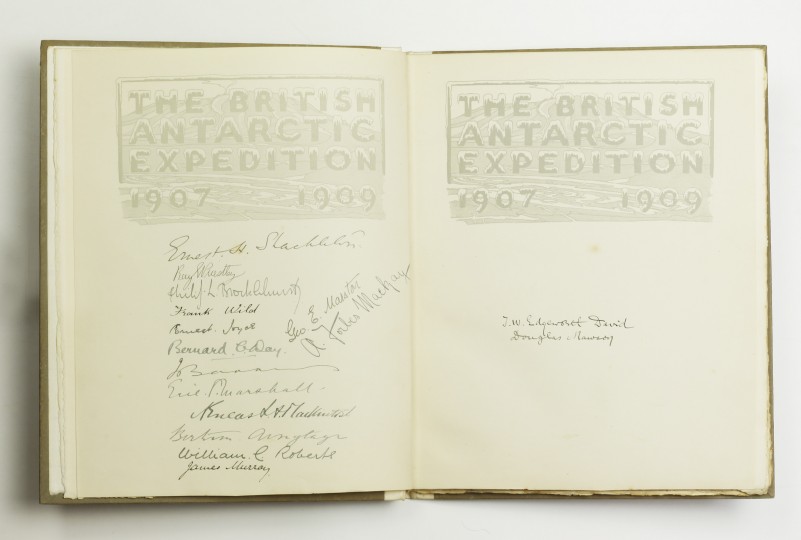 THE BRITISH
ANTARCTIC
EXPEDITION
1907 1909
Ernest H. Shackleton
Philip L Brocklehurst
Frank Wild
Ernest Joyce
Bernard. C. Day.
Eric S. Marshall.
Æneas L A Mackintosh
Bertram Armytage
William. C Roberts
James Murray
Geo E Marston
A. Forbes Mackay
THE BRITISH
ANTARCTIC
EXPEDITION
1907 1909
T. W. Edgeworth David
Douglas Mawson